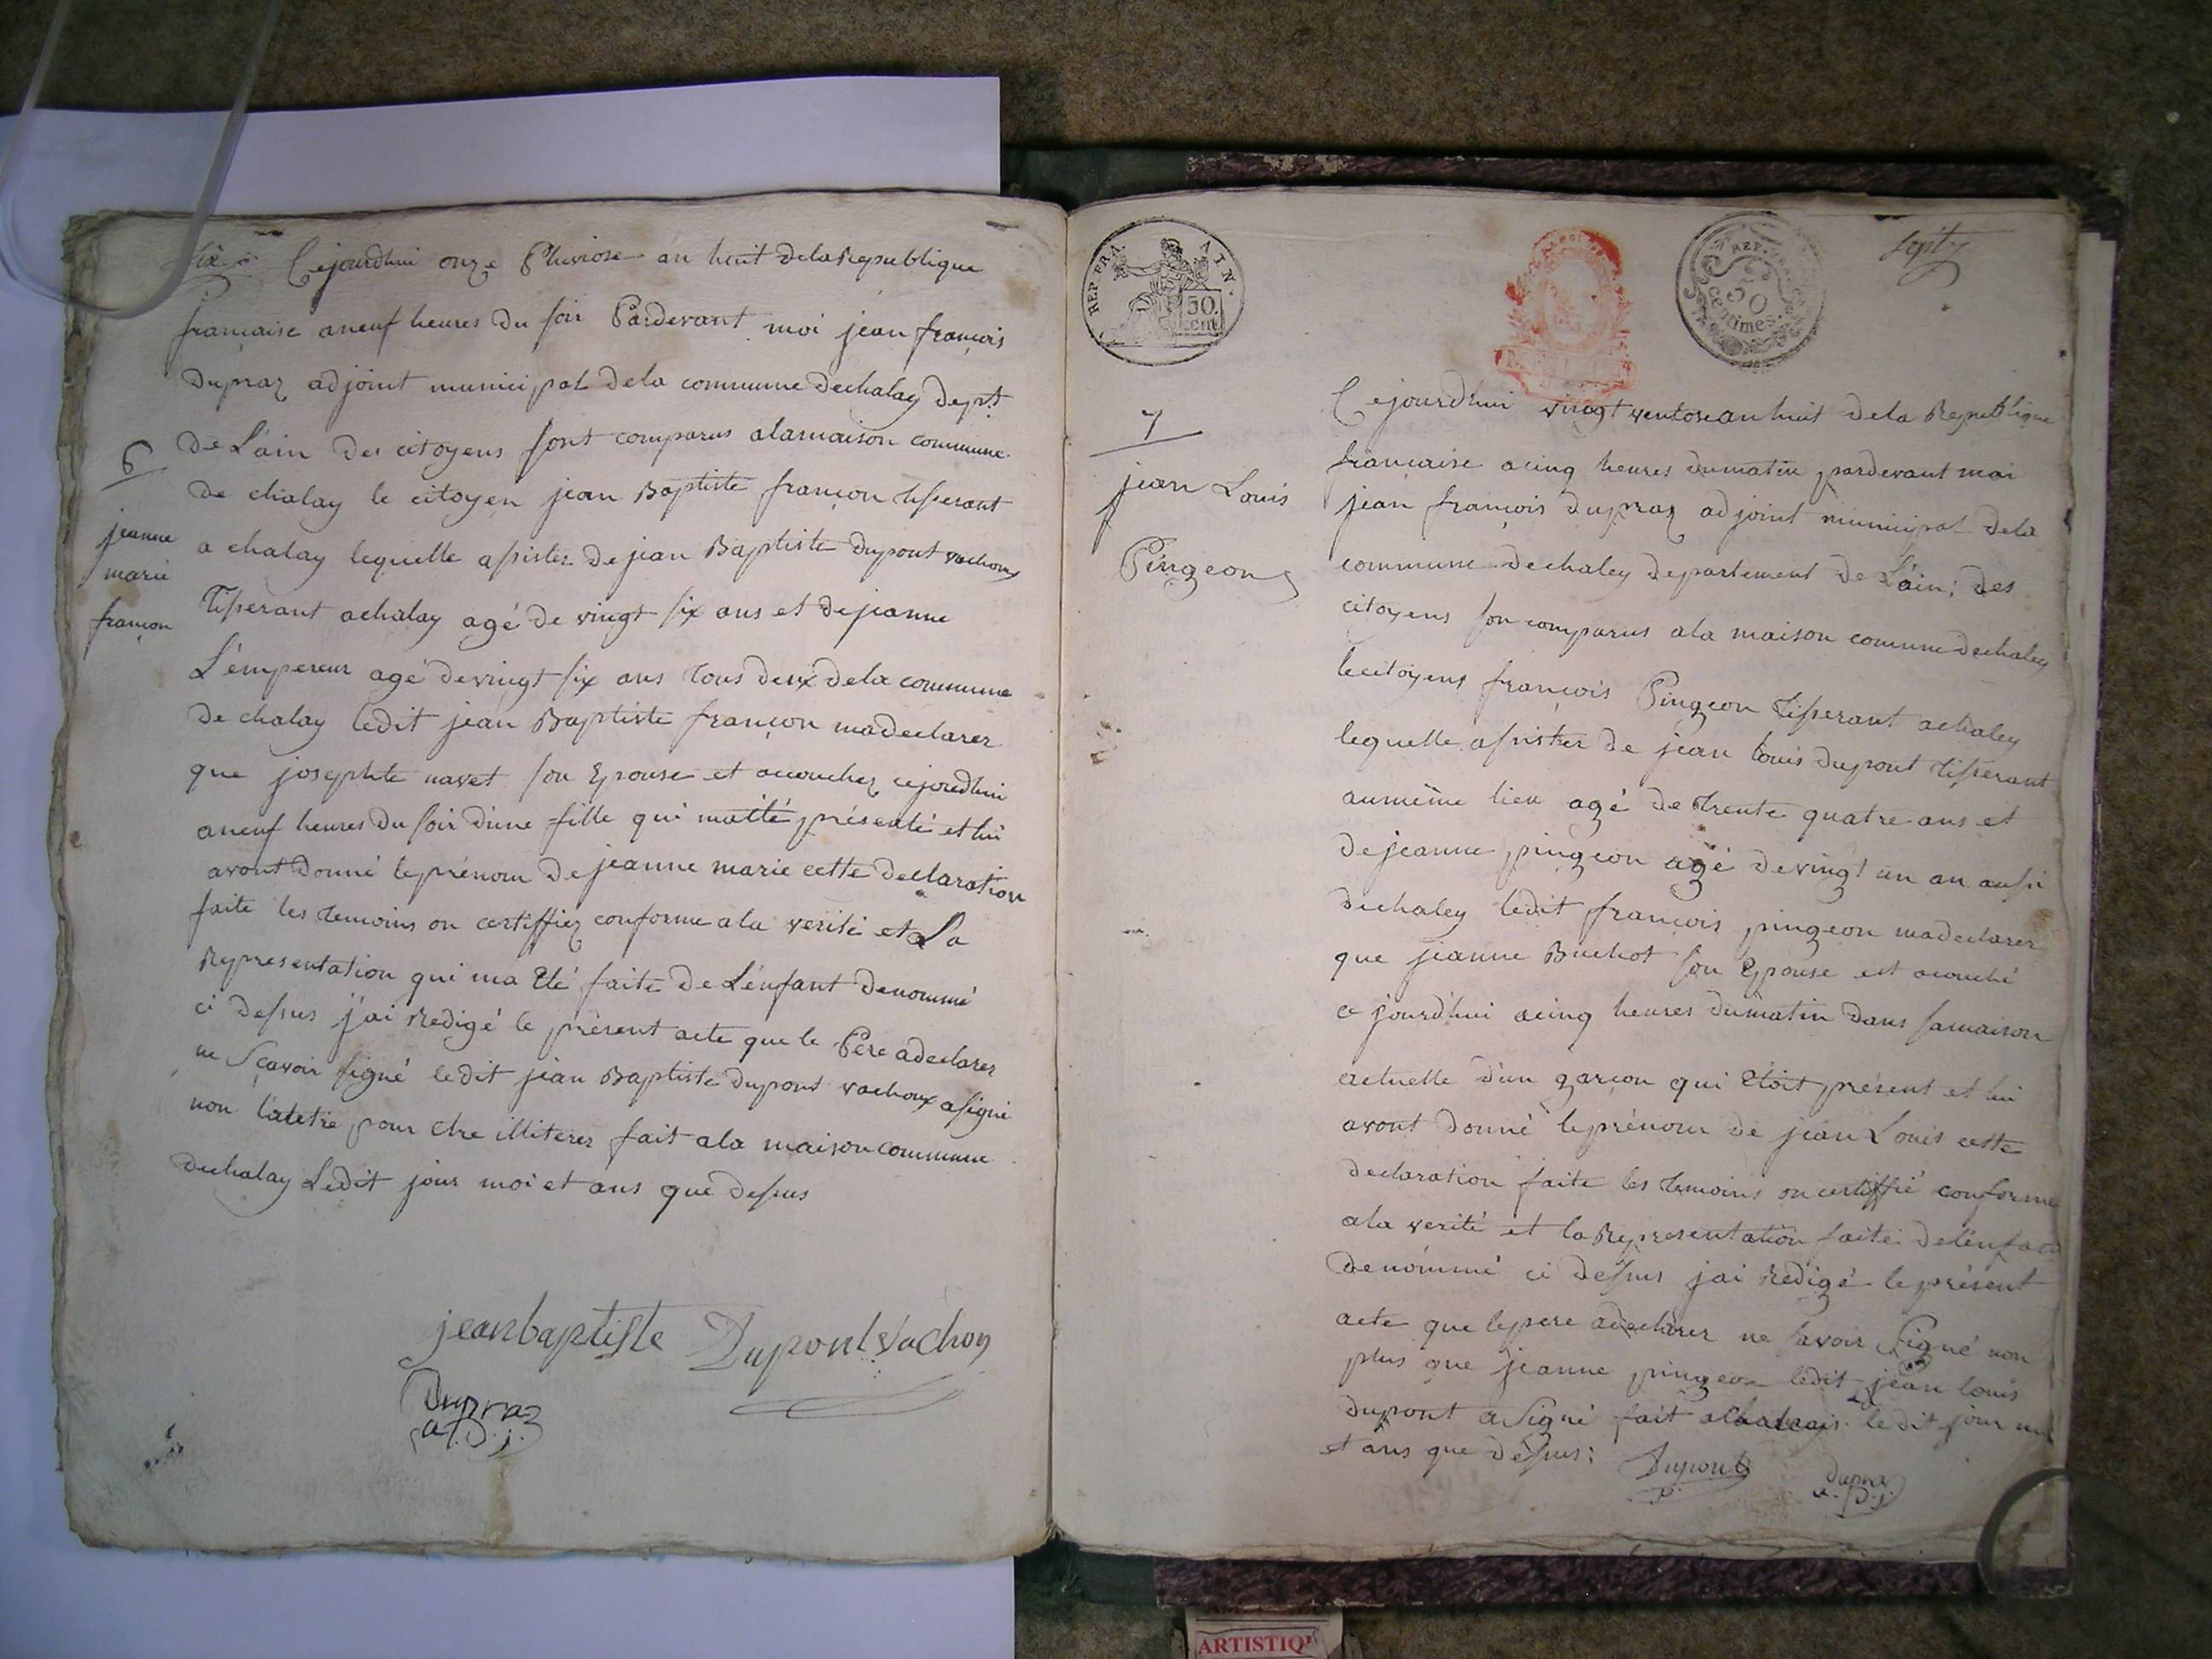 Six
Cejourdhui onze Pluviose an huit delaRepublique
francaise aneuf heures du soir Pardevant moi jean françois
dupraz adjoint municipal dela commune dechalay dept.
de L'ain des citoyens sont comparus alamaison commune
de chalay le citoyen jean Baptiste françon tisserant
a chalay lequelle assister de jean Baptiste dupont vachon
Tisserant achalay agé de vingt six ans et dejeanne
L'empereur agé devingt six ans tous deux dela commune
de chalay ledit jean Baptiste françon madeclarer
que josephte navet son Epouse et accouchez cejourdhui
aneuf heures du soir dune fille qui maité présenté et lui
avont donné leprénom de jeanne marie cette declaration
faite les temoins on certiffiez conforme ala verité et La
Representation qui ma Eté faite de L'énfant denommé
ci dessus j'ai Redigé le présent acte que le Pere adeclarer
ne Sçavoir signé ledit jean Baptiste dupont vachoux asigné
non l'autre pour etre illiterer fait ala maison commune
dechalay Ledit jour moi et ans que dessus
6
jeanne
marie
françon
jeanbaptiste Dupontvachon
Dupraz
a.D.j.
REP. FRA. AIN.
50.
cent.
REP.
50
centimes.
sept
7
jean Louis
Pingeon
Cejourdhui vingt ventose an huit dela Republique
francaise acinq heures dumatin pardevant moi
jean françois dupraz adjoint municipal dela
commune dechaley departement de L'ain; des
citoyens son comparus ala maison comune dechaley
lecitoyens françois Pingeon tisserant achaley
lequelle assister de jean Louis dupont tisserant
aumême lieu agé de trente quatre ans et
dejeanne pingeon agé devingt un an aussi
dechaley ledit françois pingeon madeclarer
que jeanne Buchot son Epouse est acouché
ce jourd'hui acinq heures dumatin dans samaison
actuelle d'un garçon qui Etoit présent et lui
avont donné leprénom de jean Louis cette
declaration faite les temoins on certiffié conforme
ala verité et laRepresentation faite del'énfant
denommé ci dessus jai Redigé leprésent
acte que lepere adeclarer ne savoir Signé non
plus que jeanne pingeon ledit jean louis
dupont a Signé fait ledit jour
et ans que dessus:
Dupont
Dupraz
a.D.j.
ARTISTIQ